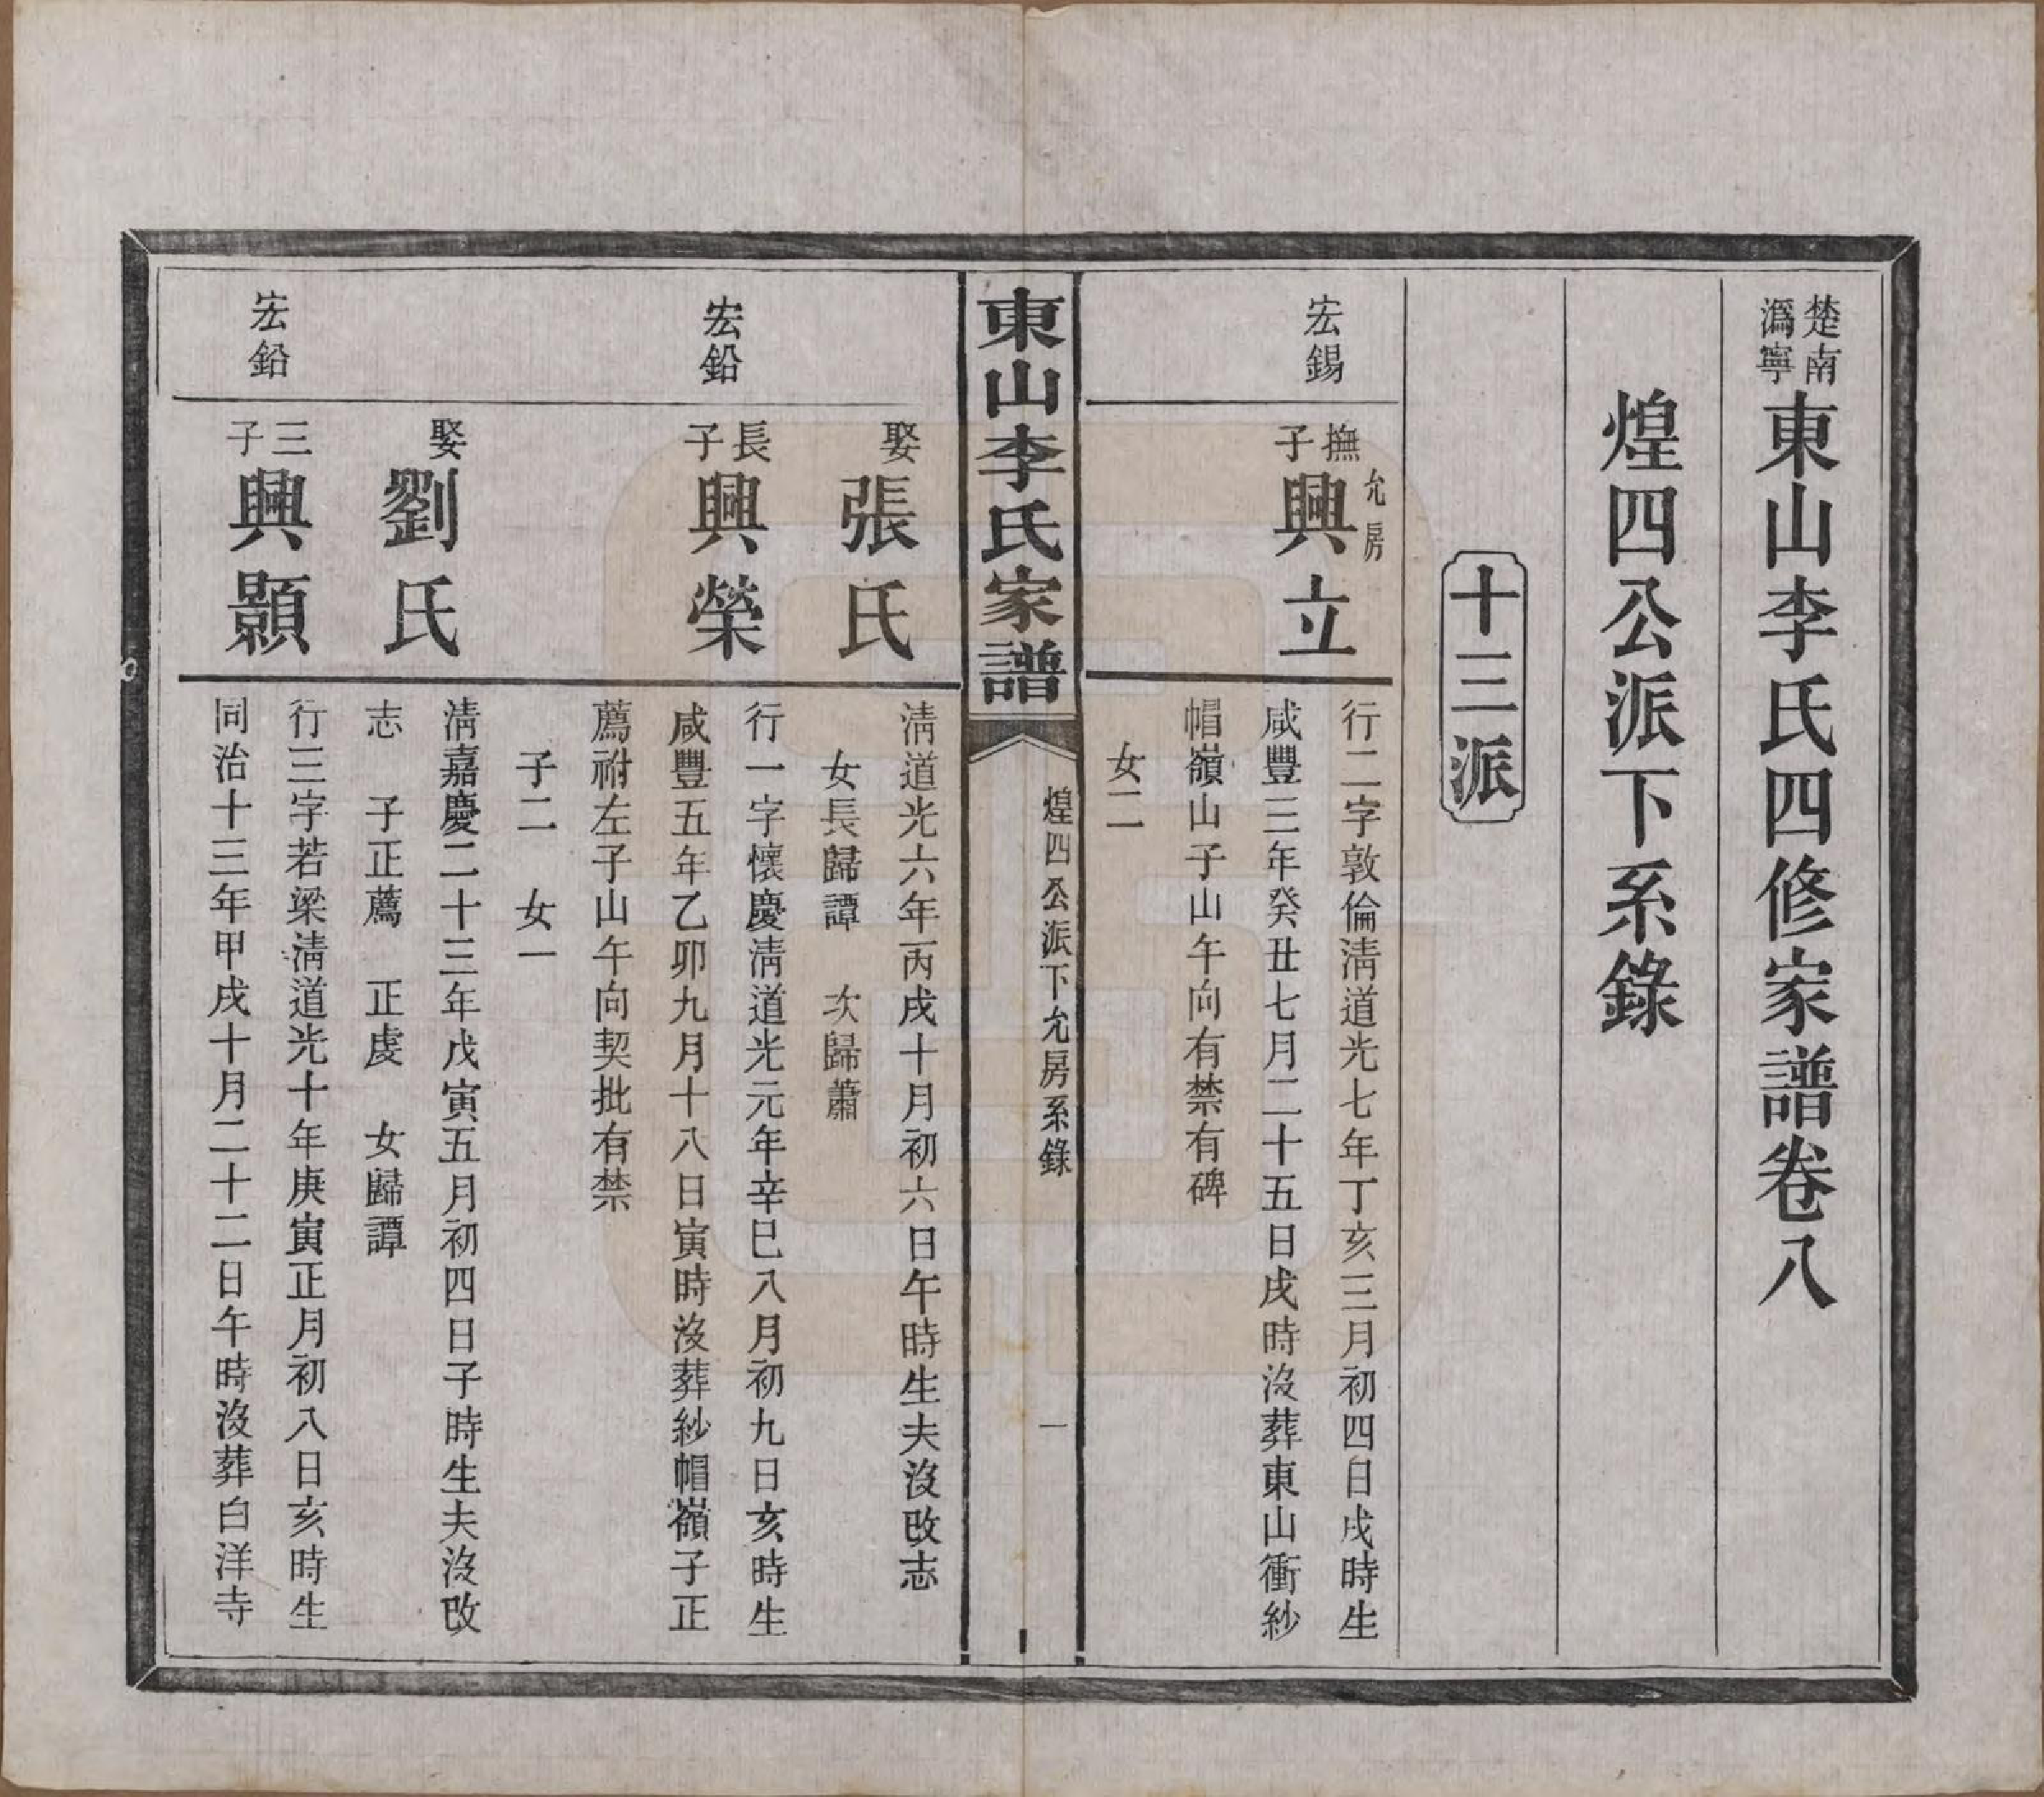 楚南
溈寧
東山李氏四修家譜卷八
煌四公派下系錄
十三派
宏錫
撫子
允房
興立
行二字敦倫淸道光七年丁亥三月初四日戌時生
咸豐三年癸丑七月二十五日戌時沒葬東山衝紗
帽嶺山子山午向有禁有碑
女二
東山李氏家譜
煌四公派下允房系錄
一
娶
張氏
淸道光六年丙戌十月初六日午時生夫沒改志
女長歸譚　次歸蕭
宏鉛
長子
興榮
行一字懷慶淸道光元年辛巳八月初九日亥時生
咸豐五年乙卯九月十八日寅時沒葬紗帽嶺子正
薦祔左子山午向契批有禁
子二　女一
娶
劉氏
淸嘉慶二十三年戊寅五月初四日子時生夫沒改
志　子正薦　正虔　女歸譚
宏鉛
三子
興顥
行三字若梁淸道光十年庚寅正月初八日亥時生
同治十三年甲戌十月二十二日午時沒葬白洋寺